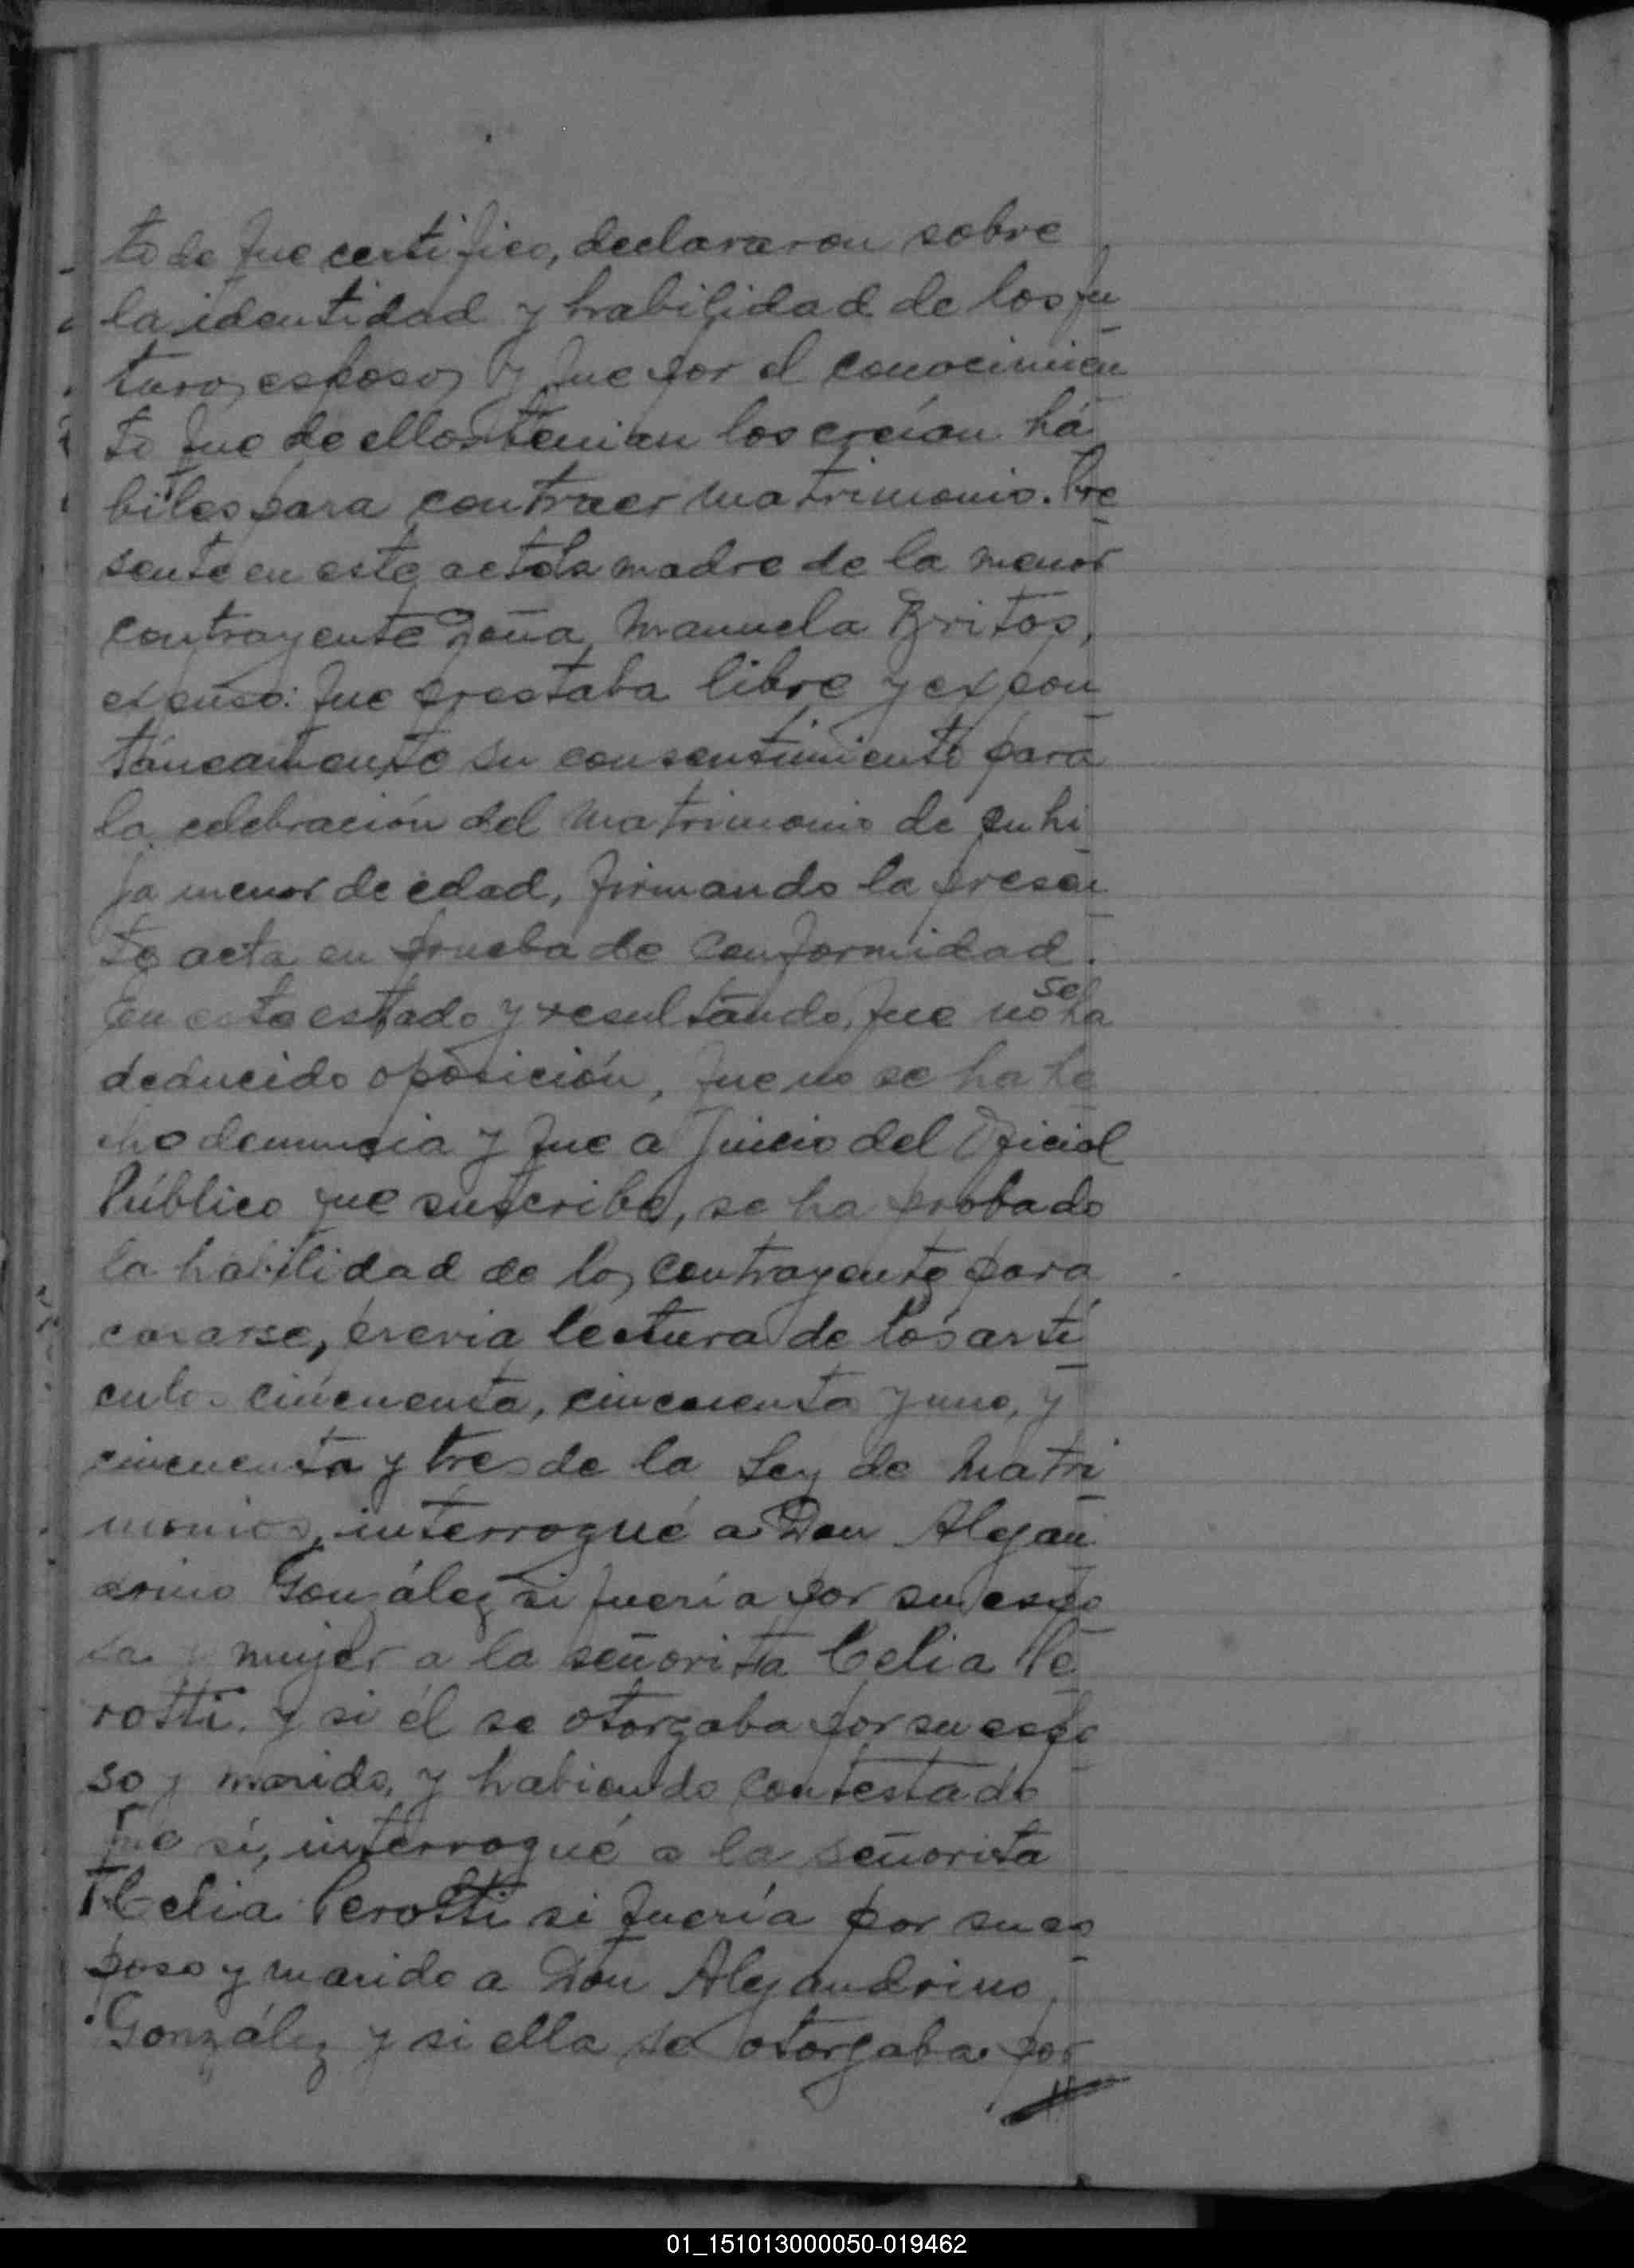 to de que certifico, declararon sobre
la identidad y habilidad de los fu
turos esposos y que por el conocimien
to que de ellos tenian los creían há
biles para contraer matrimonio. Pre
sente en este acto la madre de la menor
contrayente Doña Manuela Britos,
expuso: que prestaba libre y expon
táneamente su consentimiento para
la celebración del matrimonio de su hi
ja menor de edad, firmando la presen
te acta en prueba de conformidad.
En este estado y resultando, que no se ha
deducido oposición, que no se ha he
cho denuncia y que a juicio del Oficial
Público que suscribe, se ha probado
la habilidad de los contrayentes para
casarse, previa lectura de los artí
culos cincuenta, cincuenta y uno, y
cincuenta y tres de la Ley de Matri
monios, interrogué a Don Alejan
drino González si quería por su espo
sa y mujer a la señorita Celia Pe
rotti y si él se otorgaba por su espo
so y marido, y habiendo contestado
que sí, interrogué a la señorita
Celia Perotti si quería por su es
poso y marido a Don Alejandrino
González y si ella se otorgaba por
01_151013000050-019462